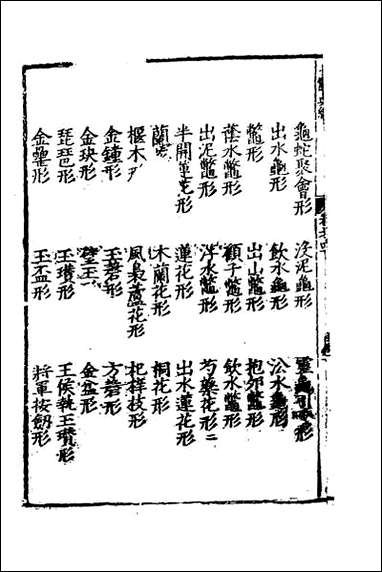 龜蛇聚會形 沒泥龜形 靈龜形
出水龜形 飲水龜形 泅水龜形
鱉形 出山鱉形 抱卵鱉形
蔭水鱉形 顧子鱉形 飲水鱉形
出泥鱉形 浮水鱉形 芍藥花形二
半開蓮花形 蓮花形 出水蓮花形
蘭 木蘭花形 桐花形
椻木形 風裊蘆花形 杞梓枝形
金鐘形 玉磬形 方磬形
金玦形 璧玉 金盆形
琵琶形 玉瓚形 王侯執玉瓚形
金罍形 玉盃形 將軍按劔形